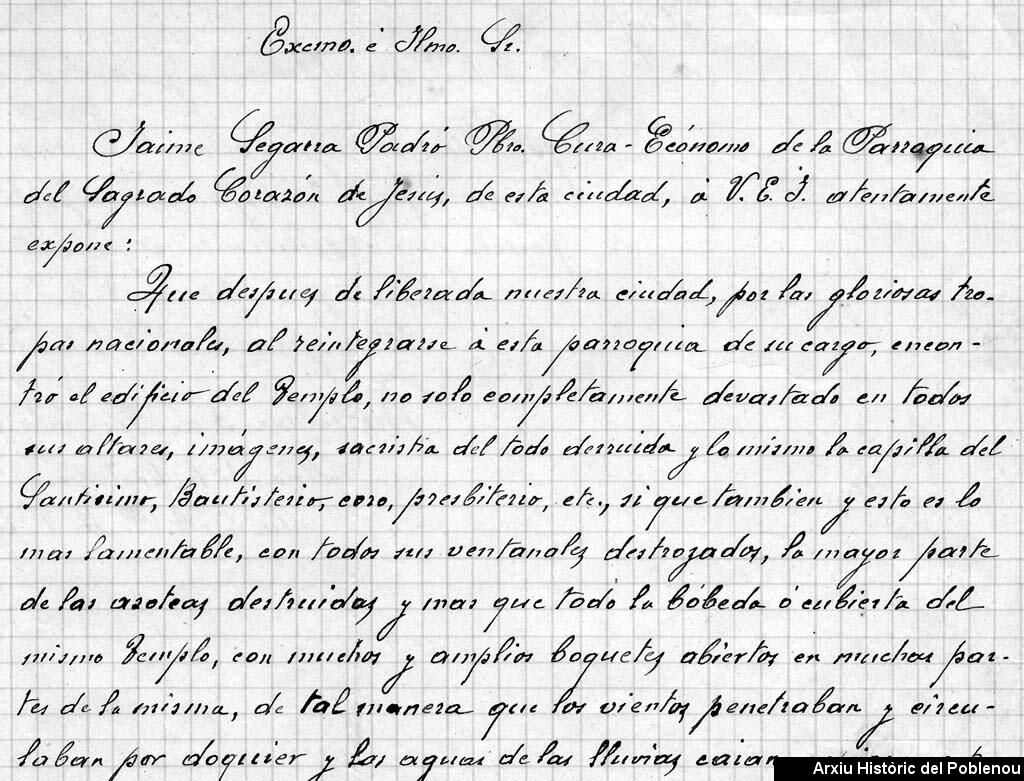 Excmo. é Ilmo. Sr.
Jaime Segarra Padró Pbro. Cura-Ecónomo de la Parroquia
del Sagrado Corazón de Jesús, de esta ciudad, á V. E. I. atentamente
expone:
Que despues de liberada nuestra ciudad, por las gloriosas tro-
pas nacionales, al reintegrarse á esta parroquia de su cargo, encon-
tró el edificio del Templo, no solo completamente devastado en todos
sus altares, imágenes, sacristia del todo derruida y lo mismo la capilla del
Santisimo, Bautisterio, coro, presbiterio, etc., si que tambien y esto es lo
mas lamentable, con todos sus ventanales destrozados, la mayor parte
de las azoteas destruidas y mas que todo la bóbeda ó cubierta del
mismo Templo, con muchos y amplios boquetes abiertos en muchas par-
tes de la misma, de tal manera que los vientos penetraban y circu-
laban por doquier y las aguas de las lluvias caian
Arxiu Històric del Poblenou